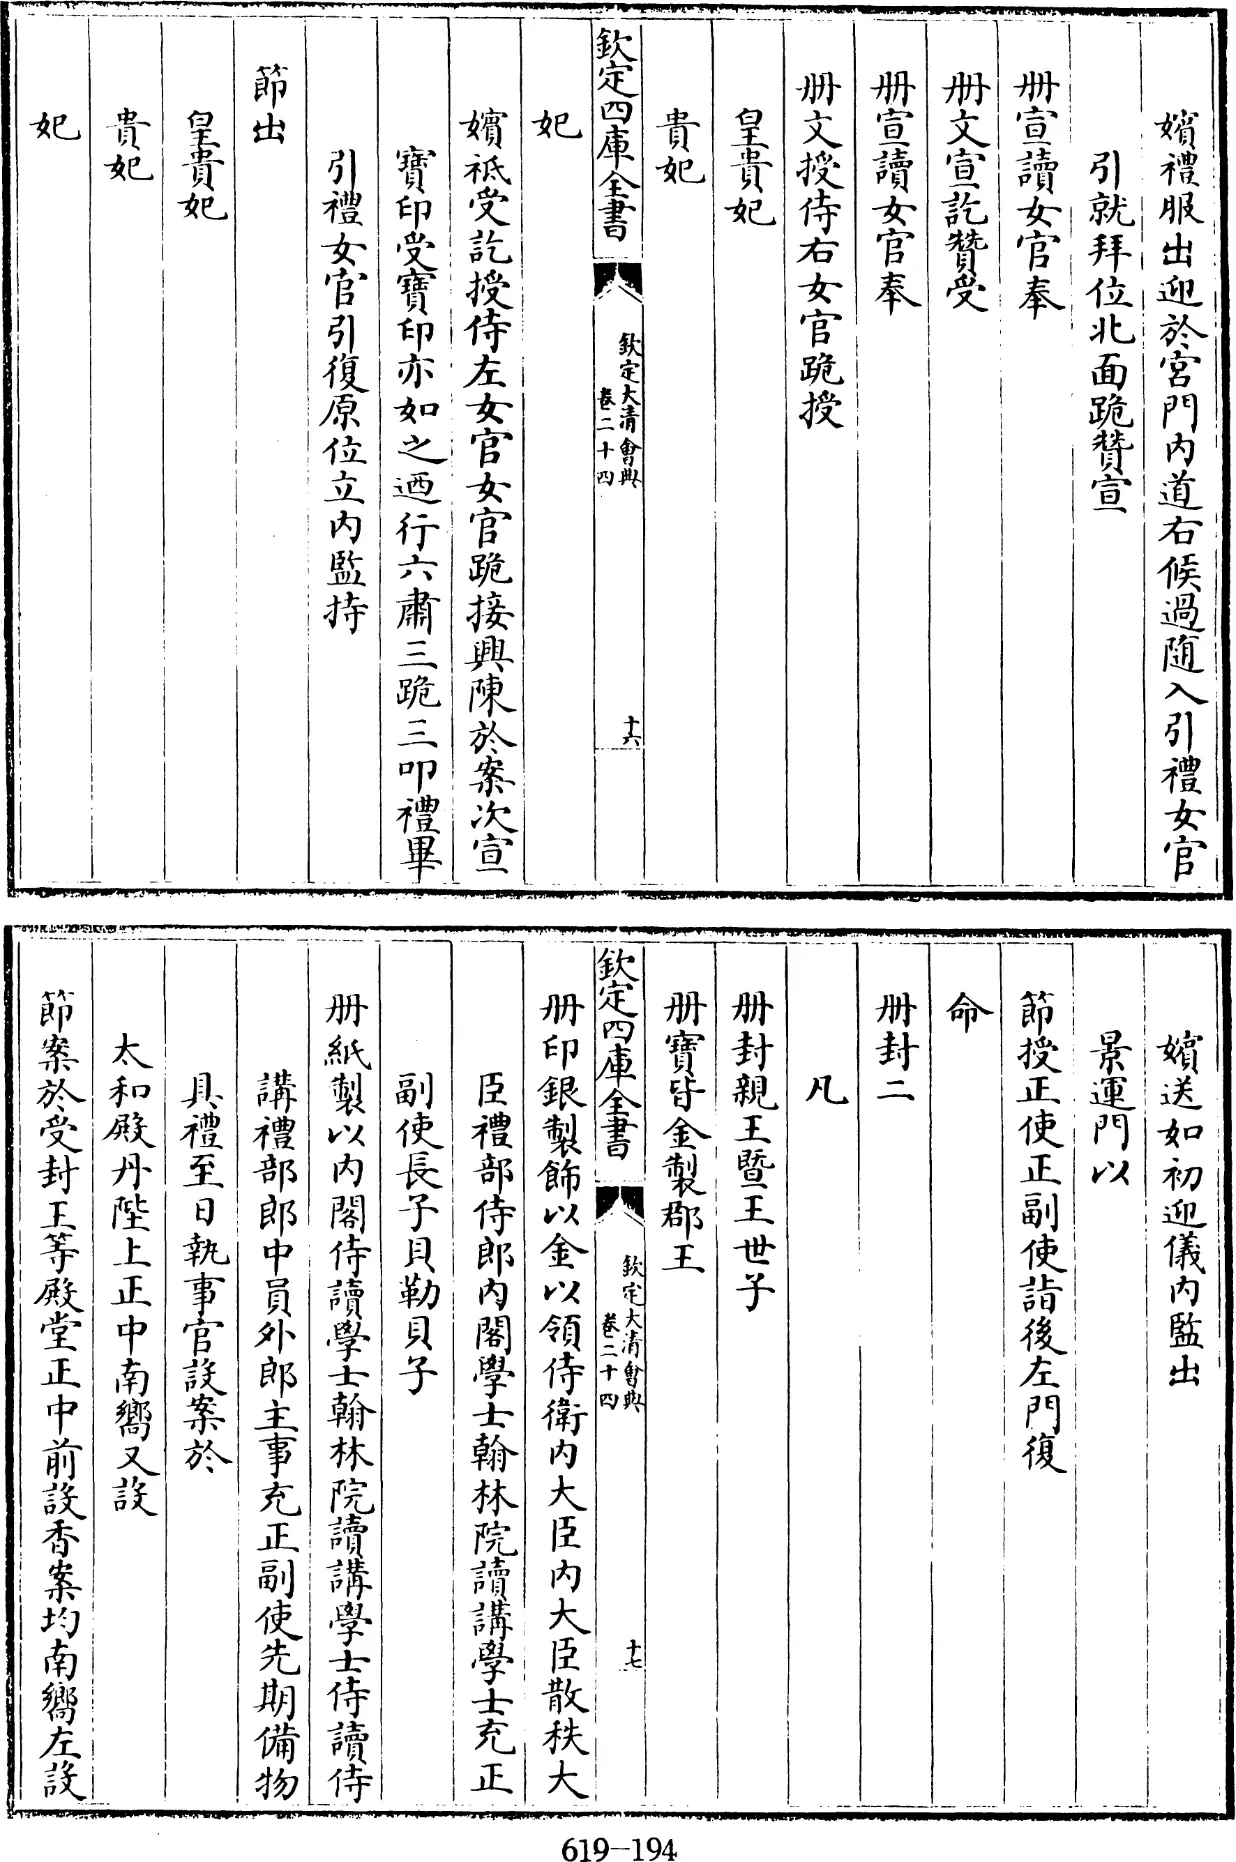 嬪禮服出迎於宮門内道右候過随入引禮女官
引就拜位北面跪贊宣
册宣讀女官奉
册文宣訖贊受
册宣讀女官奉
册文授侍右女官跪授
皇貴妃
貴妃
欽定四庫全書
欽定大清會典
卷二十四
十六
妃
嬪祗受訖授侍左女官女官跪接興陳於案次宣
寶印受寶印亦如之迺行六肅三跪三叩禮畢
引禮女官引復原位立内監持
節出
皇貴妃
貴妃
妃
嬪送如初迎儀内監出
景運門以
節授正使正副使詣後左門復
命
册封二
凡
册封親王暨王世子
册寶皆金製郡王
欽定四庫全書
欽定大清會典
卷二十四
十七
册印銀製飾以金以領侍衛内大臣内大臣散秩大
臣禮部侍郎内閣學士翰林院讀講學士充正
副使長子貝勒貝子
册紙製以内閣侍讀學士翰林院讀講學士侍讀侍
講禮部郎中員外郎主事充正副使先期備物
具禮至日執事官設案於
太和殿丹陛上正中南嚮又設
節案於受封王等殿堂正中前設香案均南嚮左設
619-194